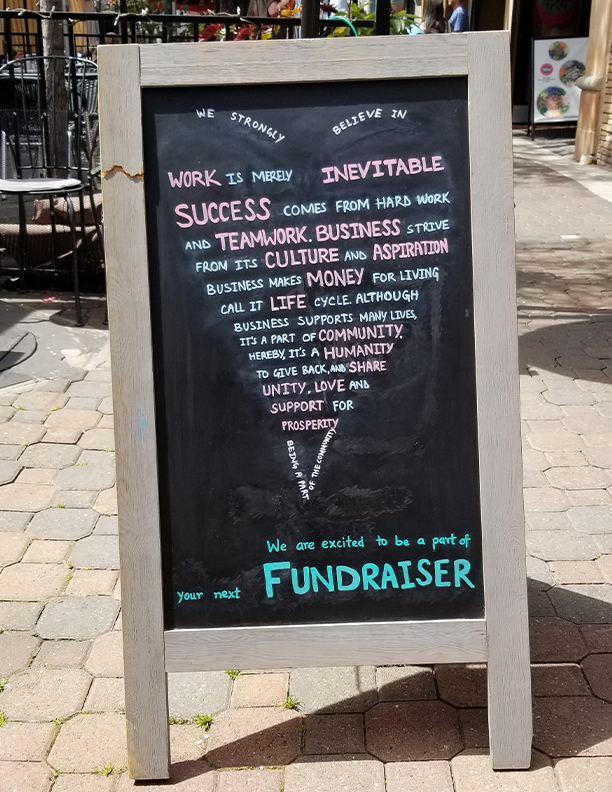 WE STRONGLY BELIEVE IN
WORK IS MERELY INEVITABLE
SUCCESS COMES FROM HARD WORK
AND TEAMWORK. BUSINESS STRIVE
FROM ITS CULTURE AND ASPIRATION
BUSINESS MAKES MONEY FOR LIVING
CALL IT LIFE CYCLE. ALTHOUGH
BUSINESS SUPPORTS MANY LIVES,
IT'S A PART OF COMMUNITY.
HEREBY, IT'S A HUMANITY
TO GIVE BACK, AND SHARE
UNITY, LOVE AND
SUPPORT FOR
PROSPERITY
BEING A PART OF THE COMMUNITY
We are excited to be a part of
your next FUNDRAISER